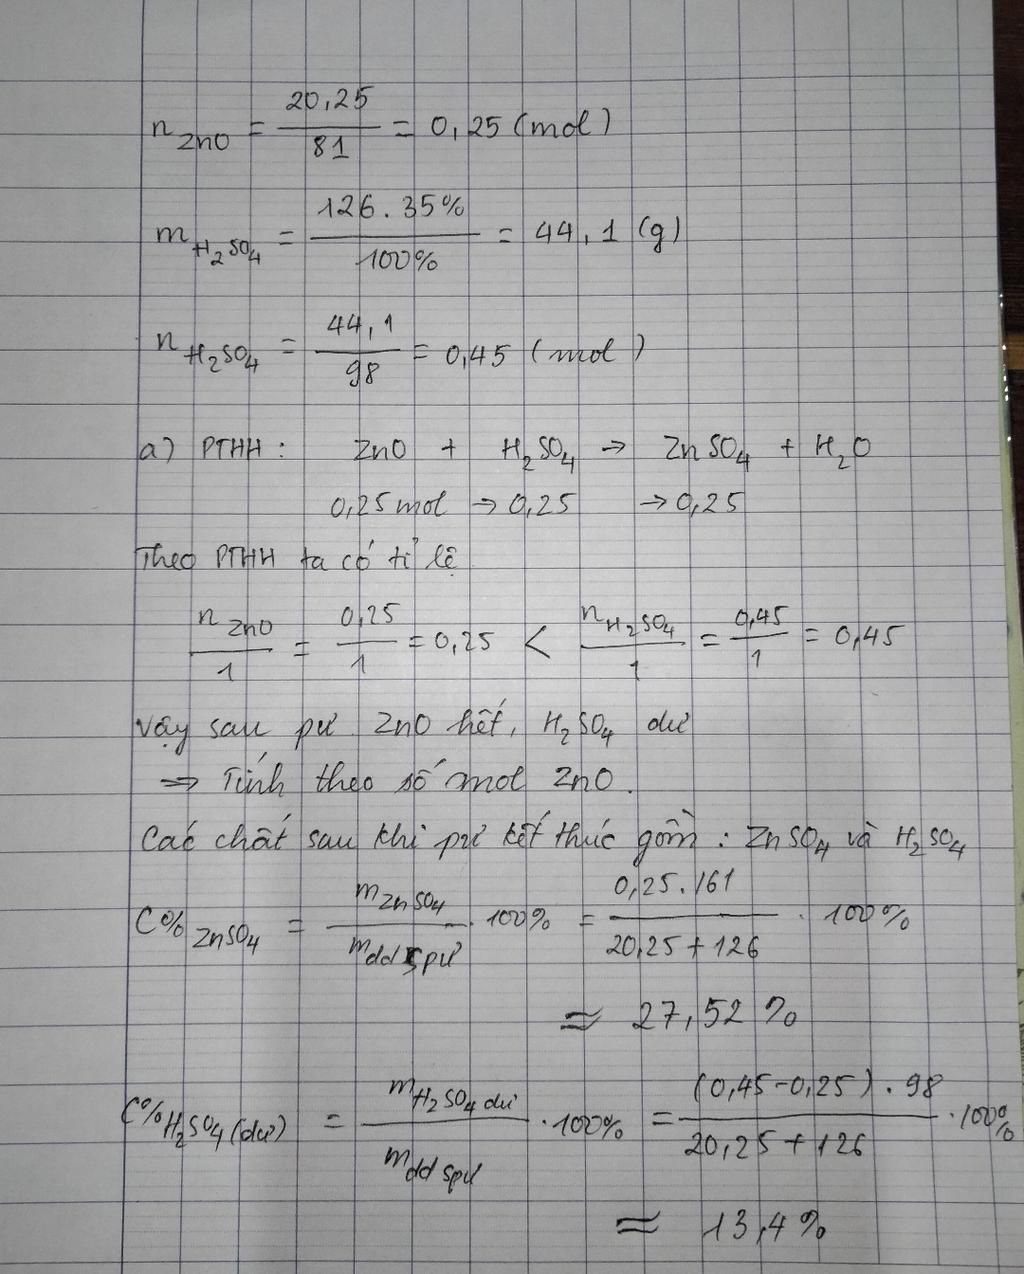 n ZnO = 20,25 / 81 = 0,25 (mol)
m H₂SO₄ = 126 . 35% / 100% = 44,1 (g)
n H₂SO₄ = 44,1 / 98 = 0,45 (mol)
a) PTHH : ZnO + H₂SO₄ → ZnSO₄ + H₂O
0,25 mol → 0,25 → 0,25
Theo PTHH ta có tỉ lệ
n ZnO / 1 = 0,25 / 1 = 0,25 < n H₂SO₄ / 1 = 0,45 / 1 = 0,45
Vậy sau pư ZnO hết, H₂SO₄ dư
⇒ Tính theo số mol ZnO.
Các chất sau khi pư kết thúc gồm : ZnSO₄ và H₂SO₄
C% ZnSO₄ = m ZnSO₄ / m dd spư . 100% = 0,25 . 161 / 20,25 + 126 . 100%
≈ 27,52 %
C% H₂SO₄ (dư) = m H₂SO₄ dư / m dd spư . 100% = (0,45 - 0,25) . 98 / 20,25 + 126 . 100%
≈ 13,4 %